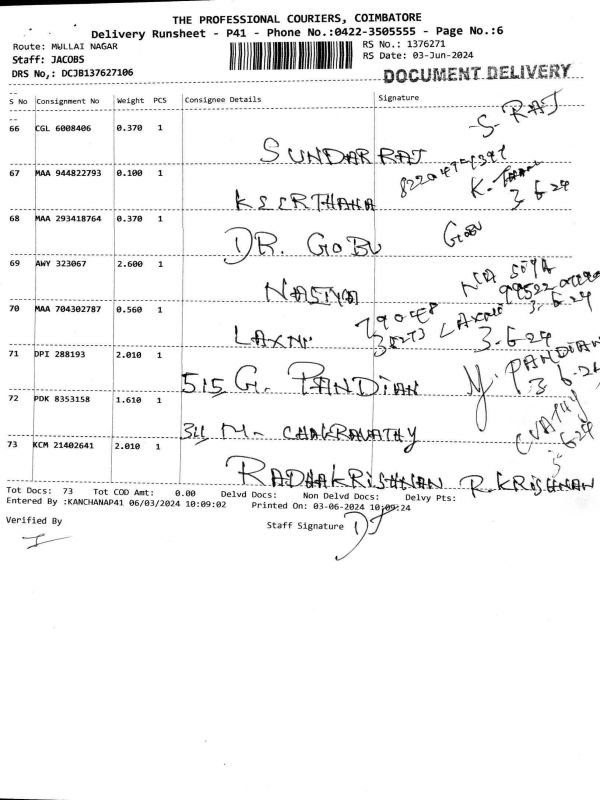 THE PROFESSIONAL COURIERS, COIMBATORE
Delivery Runsheet - P41 - Phone No.:0422-3505555 - Page No.:6
Route: MULLAI NAGAR RS No.: 1376271
Staff: JACOBS RS Date: 03-Jun-2024
DRS No,: DCJB137627106 DOCUMENT DELIVERY
S No Consignment No Weight PCS Consignee Details Signature
66 CGL 6008406 0.370 1 SUNDAR RAJ S. RAJ
67 MAA 944822793 0.100 1 KEERTHANA K. 3-6-24
68 MAA 293418764 0.370 1 DR. GOBU GOBU
69 AWY 323067 2.600 1 3-6-24
70 MAA 704302787 0.560 1 LAXMI LAXMI 3-6-24
71 DPI 288193 2.010 1 515 G. PANDIAN PANDIAN 3-6-24
72 PDK 8353158 1.610 1 M- CHAKRAVATHY 3-6-24
73 KCM 21402641 2.010 1 RADHAKRISHNAN R. KRISHNAN
Tot Docs: 73 Tot COD Amt: 0.00 Delvd Docs: Non Delvd Docs: Delvy Pts:
Entered By :KANCHANAP41 06/03/2024 10:09:02 Printed On: 03-06-2024 10:09:24
Verified By Staff Signature